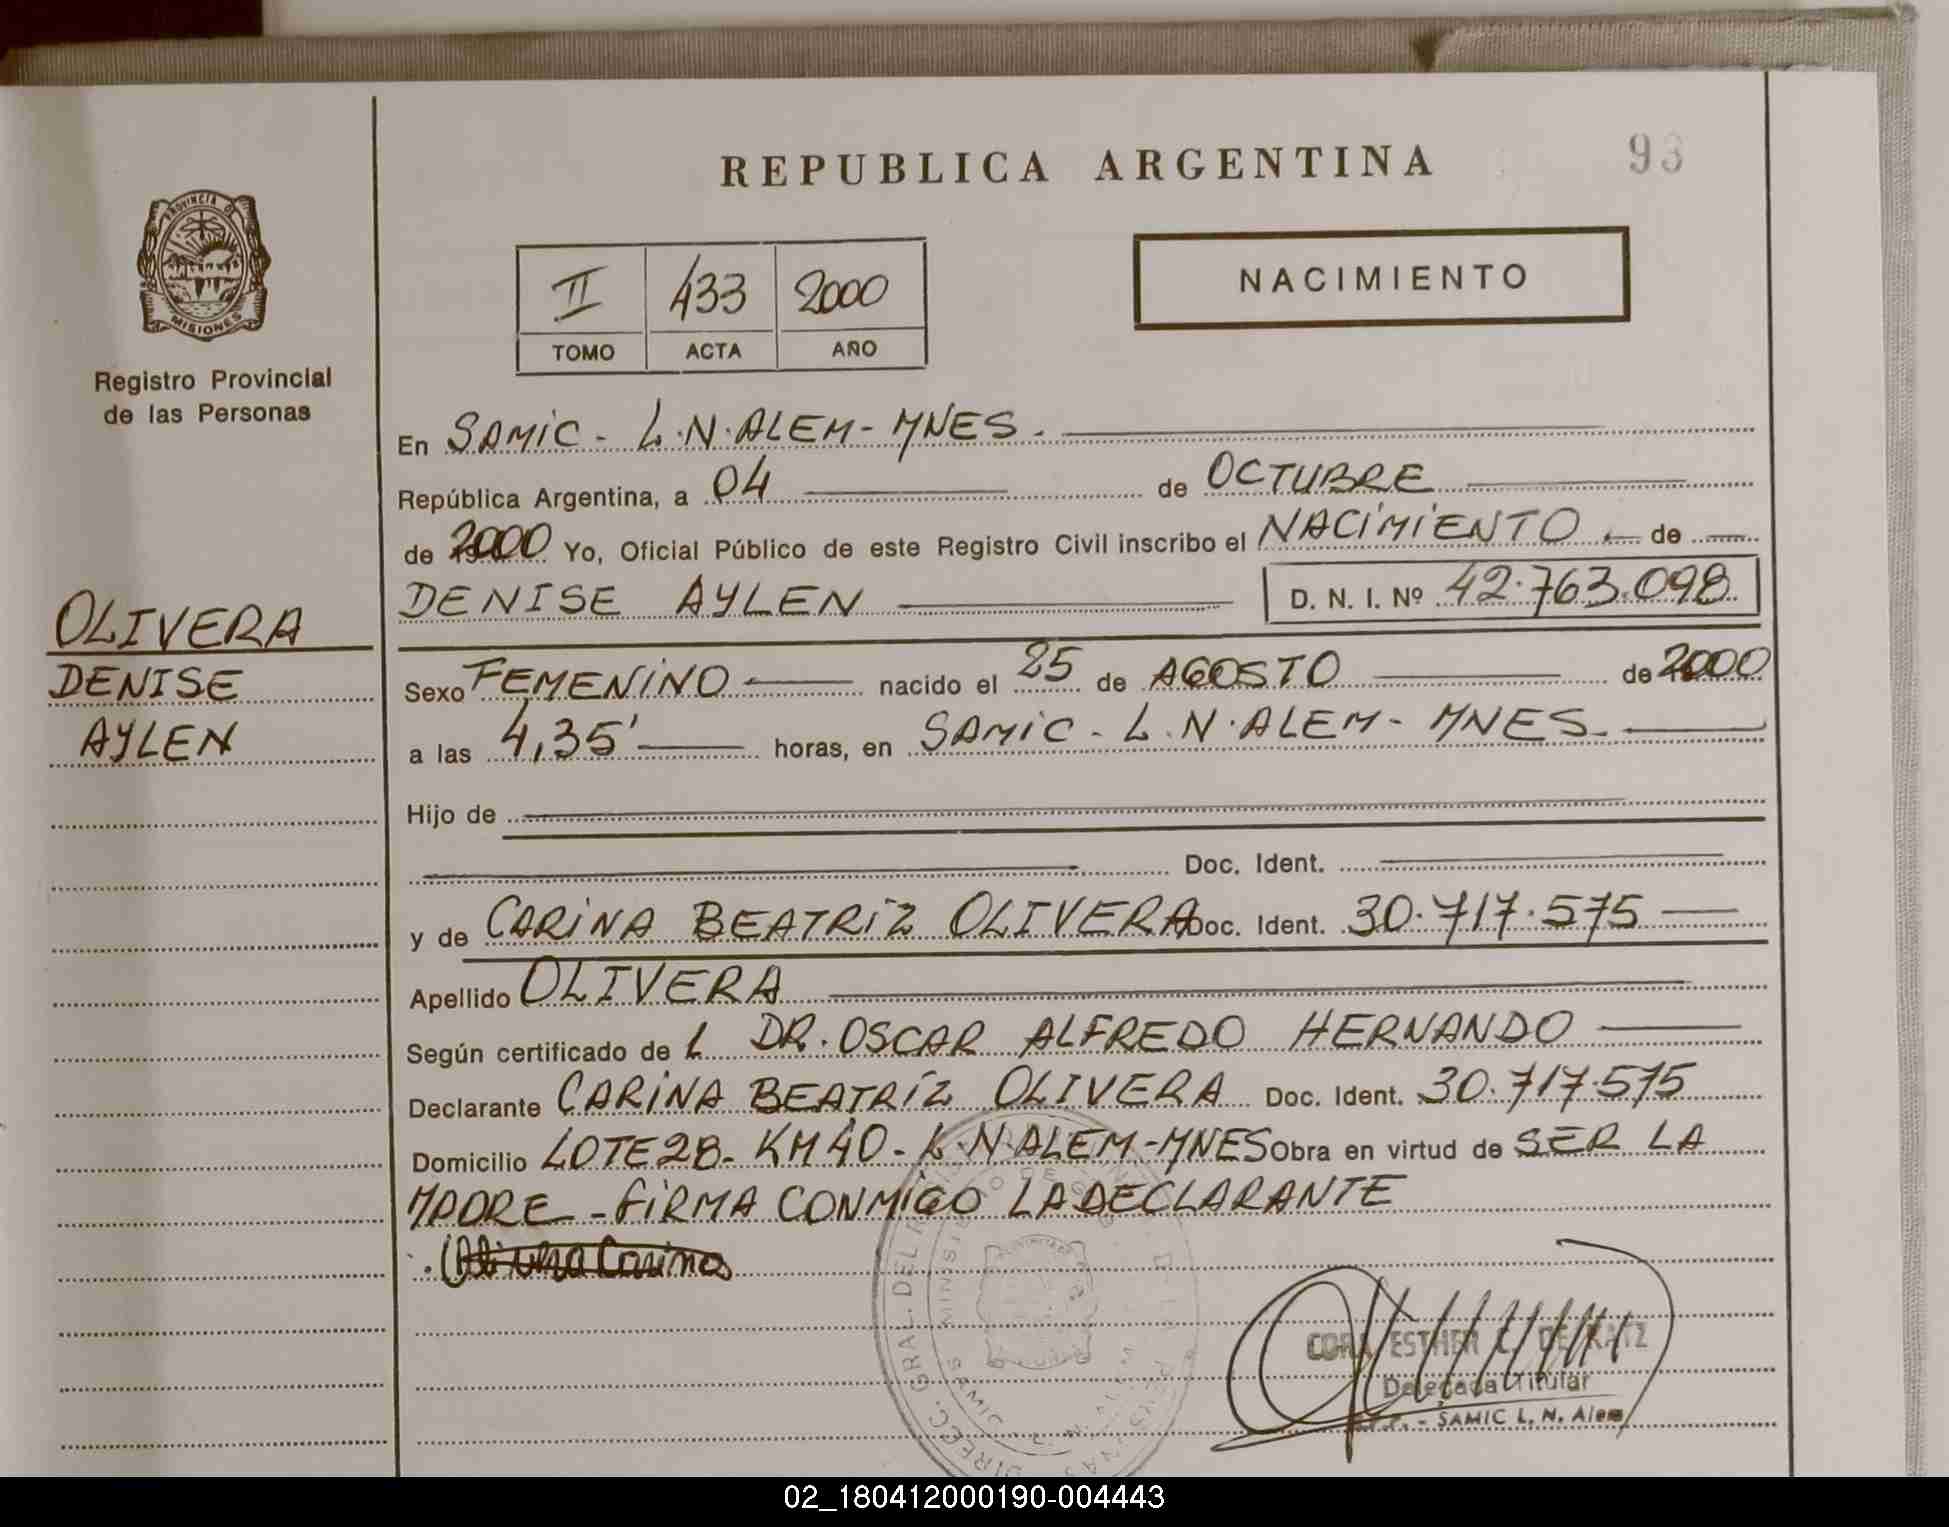 REPUBLICA ARGENTINA
93
PROVINCIA DE
MISIONES
Registro Provincial
de las Personas
II 433 2000
TOMO ACTA AÑO
NACIMIENTO
En SAMIC - L.N.ALEM - MNES.
República Argentina, a 04 de OCTUBRE
de 2000 Yo, Oficial Público de este Registro Civil inscribo el NACIMIENTO de
DENISE AYLEN D. N. I. Nº 42.763.098
OLIVERA
DENISE
AYLEN
Sexo FEMENINO nacido el 25 de AGOSTO de 2000
a las 4,35' horas, en SAMIC - L.N.ALEM - MNES.
Hijo de
Doc. Ident.
y de CARINA BEATRIZ OLIVERA Doc. Ident. 30.717.575
Apellido OLIVERA
Según certificado de L DR. OSCAR ALFREDO HERNANDO
Declarante CARINA BEATRIZ OLIVERA Doc. Ident. 30.717.575
Domicilio LOTE 28 - KM 40 - L.N ALEM - MNES Obra en virtud de SER LA
MADRE - FIRMA CONMIGO LA DECLARANTE
Olivera Carina
CORA ESTHER C. DE RATZ
Delegada Titular
SAMIC L. N. Alem
DIREC. GRAL. DEL
SAMIC
02_180412000190-004443